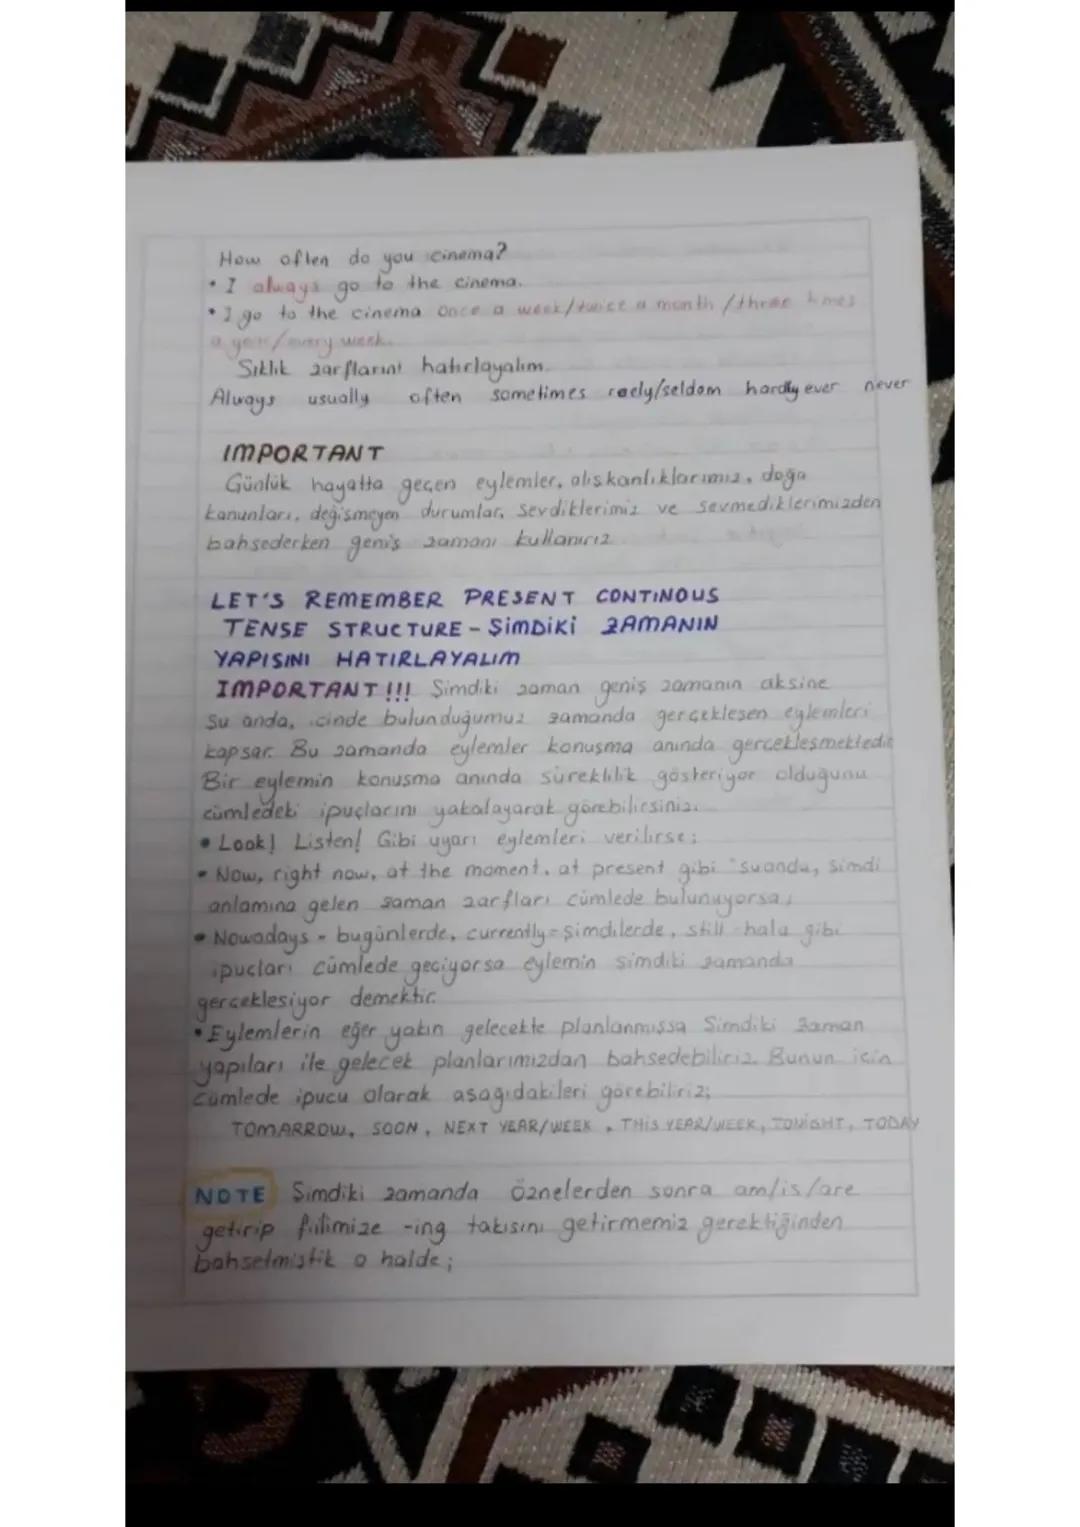 How often do you cinema?
• I always go to the cinema.
• I go to the cinema once a week/twice a month/three times
a year/every week.
Sıklık zarflarını hatırlayalım.
Always usually often sometimes raely/seldom hardly ever never
IMPORTANT
Günlük hayatta geçen eylemler, alışkanlıklarımız, doğa
kanunları, değişmeyen durumlar, sevdiklerimiz ve sevmediklerimizden
bahsederken geniş zamanı kullanırız
LET'S REMEMBER PRESENT CONTINOUS
TENSE STRUCTURE - ŞİMDİKİ ZAMANIN
YAPISINI HATIRLAYALIM
IMPORTANT!!! Şimdiki zaman geniş zamanın aksine
Şu anda, içinde bulunduğumuz zamanda gerçekleşen eylemleri
kapsar. Bu zamanda eylemler konuşma anında gerçekleşmektedir
Bir eylemin konuşma anında süreklilik gösteriyor olduğunu
cümledeki ipuçlarını yakalayarak görebilirsiniz.
• Look! Listen! Gibi uyarı eylemleri verilirse;
• Now, right now, at the moment, at present gibi "şuanda, şimdi
anlamına gelen zaman zarfları cümlede bulunuyorsa;
• Nowadays - bugünlerde, currently = şimdilerde, still - hala gibi
ipuçları cümlede geçiyorsa eylemin şimdiki zamanda
gerçekleşiyor demektir.
• Eylemlerin eğer yakın gelecekte planlanmışsa Şimdiki Zaman
yapıları ile gelecek planlarımızdan bahsedebiliriz. Bunun için
cümlede ipucu olarak aşağıdakileri görebiliriz;
TOMARROW, SOON, NEXT YEAR/WEEK, THIS YEAR/WEEK, TONİGHT, TODAY
NOTE Şimdiki zamanda öznelerden sonra am/is/are
getirip fiilimize -ing takısını getirmemiz gerektiğinden
bahsetmiştik o halde;